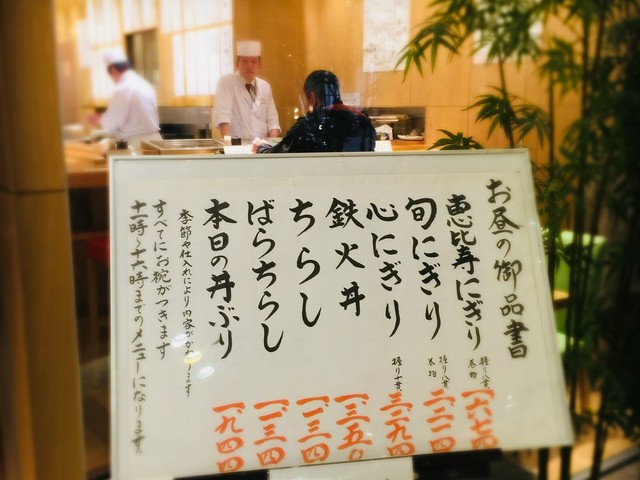 お昼の御品書
恵比寿にぎり 握り八貫 巻物 一、六七四
旬にぎり 握り八貫 巻物 二、二一四
心にぎり 握り十貫 三、二九四
鉄火丼 一、三五〇
ちらし 一、一三四
ばらちらし 一、一三四
本日の丼ぶり 一、九四四
季節や仕入れにより内容がかわります
すべてにお椀がつきます
十一時～十六時までのメニューになります。